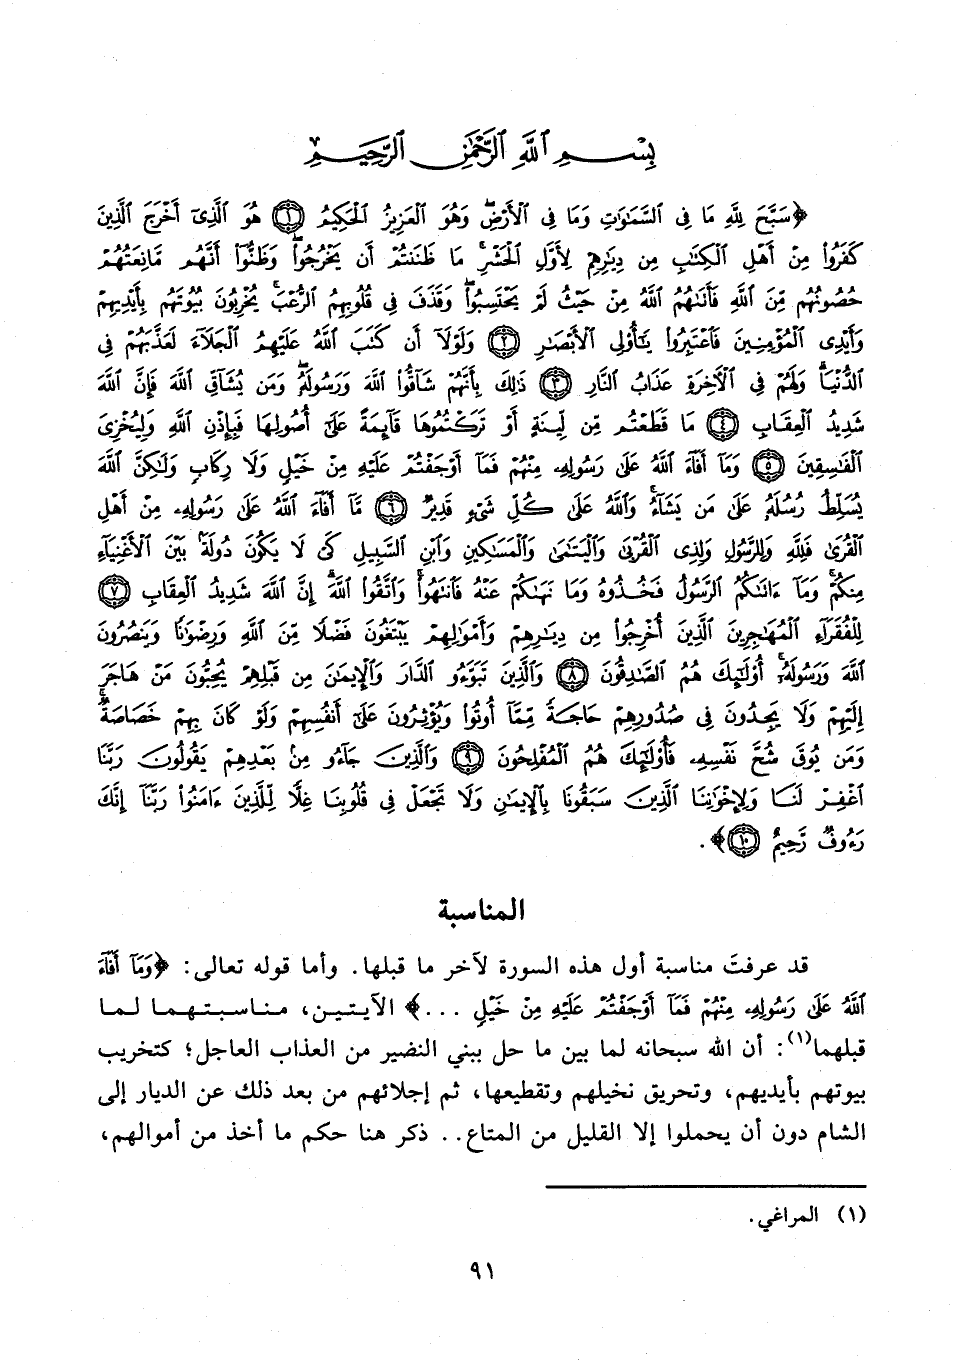 بِسْمِ ٱللَّهِ ٱلرَّحْمَٰنِ ٱلرَّحِيمِ
﴿سَبَّحَ لِلَّهِ مَا فِى ٱلسَّمَٰوَٰتِ وَمَا فِى ٱلْأَرْضِۖ وَهُوَ ٱلْعَزِيزُ ٱلْحَكِيمُ ﴿١﴾ هُوَ ٱلَّذِىٓ أَخْرَجَ ٱلَّذِينَ
كَفَرُوا۟ مِنْ أَهْلِ ٱلْكِتَٰبِ مِن دِيَٰرِهِمْ لِأَوَّلِ ٱلْحَشْرِۚ مَا ظَنَنتُمْ أَن يَخْرُجُوا۟ۖ وَظَنُّوٓا۟ أَنَّهُم مَّانِعَتُهُمْ
حُصُونُهُم مِّنَ ٱللَّهِ فَأَتَىٰهُمُ ٱللَّهُ مِنْ حَيْثُ لَمْ يَحْتَسِبُوا۟ۖ وَقَذَفَ فِى قُلُوبِهِمُ ٱلرُّعْبَۚ يُخْرِبُونَ بُيُوتَهُم بِأَيْدِيهِمْ
وَأَيْدِى ٱلْمُؤْمِنِينَ فَٱعْتَبِرُوا۟ يَٰٓأُو۟لِى ٱلْأَبْصَٰرِ ﴿٢﴾ وَلَوْلَآ أَن كَتَبَ ٱللَّهُ عَلَيْهِمُ ٱلْجَلَآءَ لَعَذَّبَهُمْ فِى
ٱلدُّنْيَاۖ وَلَهُمْ فِى ٱلْآخِرَةِ عَذَابُ ٱلنَّارِ ﴿٣﴾ ذَٰلِكَ بِأَنَّهُمْ شَآقُّوا۟ ٱللَّهَ وَرَسُولَهُۥۖ وَمَن يُشَآقِّ ٱللَّهَ فَإِنَّ ٱللَّهَ
شَدِيدُ ٱلْعِقَابِ ﴿٤﴾ مَا قَطَعْتُم مِّن لِّينَةٍ أَوْ تَرَكْتُمُوهَا قَآئِمَةً عَلَىٰٓ أُصُولِهَا فَبِإِذْنِ ٱللَّهِ وَلِيُخْزِىَ
ٱلْفَٰسِقِينَ ﴿٥﴾ وَمَآ أَفَآءَ ٱللَّهُ عَلَىٰ رَسُولِهِۦ مِنْهُمْ فَمَآ أَوْجَفْتُمْ عَلَيْهِ مِنْ خَيْلٍ وَلَا رِكَابٍ وَلَٰكِنَّ ٱللَّهَ
يُسَلِّطُ رُسُلَهُۥ عَلَىٰ مَن يَشَآءُۚ وَٱللَّهُ عَلَىٰ كُلِّ شَىْءٍ قَدِيرٌ ﴿٦﴾ مَّآ أَفَآءَ ٱللَّهُ عَلَىٰ رَسُولِهِۦ مِنْ أَهْلِ
ٱلْقُرَىٰ فَلِلَّهِ وَلِلرَّسُولِ وَلِذِى ٱلْقُرْبَىٰ وَٱلْيَتَٰمَىٰ وَٱلْمَسَٰكِينِ وَٱبْنِ ٱلسَّبِيلِ كَىْ لَا يَكُونَ دُولَةًۢ بَيْنَ ٱلْأَغْنِيَآءِ
مِنكُمْۚ وَمَآ ءَاتَىٰكُمُ ٱلرَّسُولُ فَخُذُوهُ وَمَا نَهَىٰكُمْ عَنْهُ فَٱنتَهُوا۟ۚ وَٱتَّقُوا۟ ٱللَّهَۖ إِنَّ ٱللَّهَ شَدِيدُ ٱلْعِقَابِ ﴿٧﴾
لِلْفُقَرَآءِ ٱلْمُهَٰجِرِينَ ٱلَّذِينَ أُخْرِجُوا۟ مِن دِيَٰرِهِمْ وَأَمْوَٰلِهِمْ يَبْتَغُونَ فَضْلًا مِّنَ ٱللَّهِ وَرِضْوَٰنًا وَيَنصُرُونَ
ٱللَّهَ وَرَسُولَهُۥٓۚ أُو۟لَٰٓئِكَ هُمُ ٱلصَّٰدِقُونَ ﴿٨﴾ وَٱلَّذِينَ تَبَوَّءُو ٱلدَّارَ وَٱلْإِيمَٰنَ مِن قَبْلِهِمْ يُحِبُّونَ مَنْ هَاجَرَ
إِلَيْهِمْ وَلَا يَجِدُونَ فِى صُدُورِهِمْ حَاجَةً مِّمَّآ أُوتُوا۟ وَيُؤْثِرُونَ عَلَىٰٓ أَنفُسِهِمْ وَلَوْ كَانَ بِهِمْ خَصَاصَةٌۚ
وَمَن يُوقَ شُحَّ نَفْسِهِۦ فَأُو۟لَٰٓئِكَ هُمُ ٱلْمُفْلِحُونَ ﴿٩﴾ وَٱلَّذِينَ جَآءُو مِنۢ بَعْدِهِمْ يَقُولُونَ رَبَّنَا
ٱغْفِرْ لَنَا وَلِإِخْوَٰنِنَا ٱلَّذِينَ سَبَقُونَا بِٱلْإِيمَٰنِ وَلَا تَجْعَلْ فِى قُلُوبِنَا غِلًّا لِّلَّذِينَ ءَامَنُوا۟ رَبَّنَآ إِنَّكَ
رَءُوفٌ رَّحِيمٌ ﴿١٠﴾﴾.
المناسبة
قد عرفتَ مناسبة أول هذه السورة لآخر ما قبلها. وأما قوله تعالى: ﴿وَمَآ أَفَآءَ
ٱللَّهُ عَلَىٰ رَسُولِهِۦ مِنْهُمْ فَمَآ أَوْجَفْتُمْ عَلَيْهِ مِنْ خَيْلٍ ...﴾ الآيتين، مناسبتهما لما
قبلهما(١): أن الله سبحانه لما بين ما حل ببني النضير من العذاب العاجل؛ كتخريب
بيوتهم بأيديهم، وتحريق نخيلهم وتقطيعها، ثم إجلائهم من بعد ذلك عن الديار إلى
الشام دون أن يحملوا إلا القليل من المتاع.. ذكر هنا حكم ما أخذ من أموالهم،
(١) المراغي.
٩١